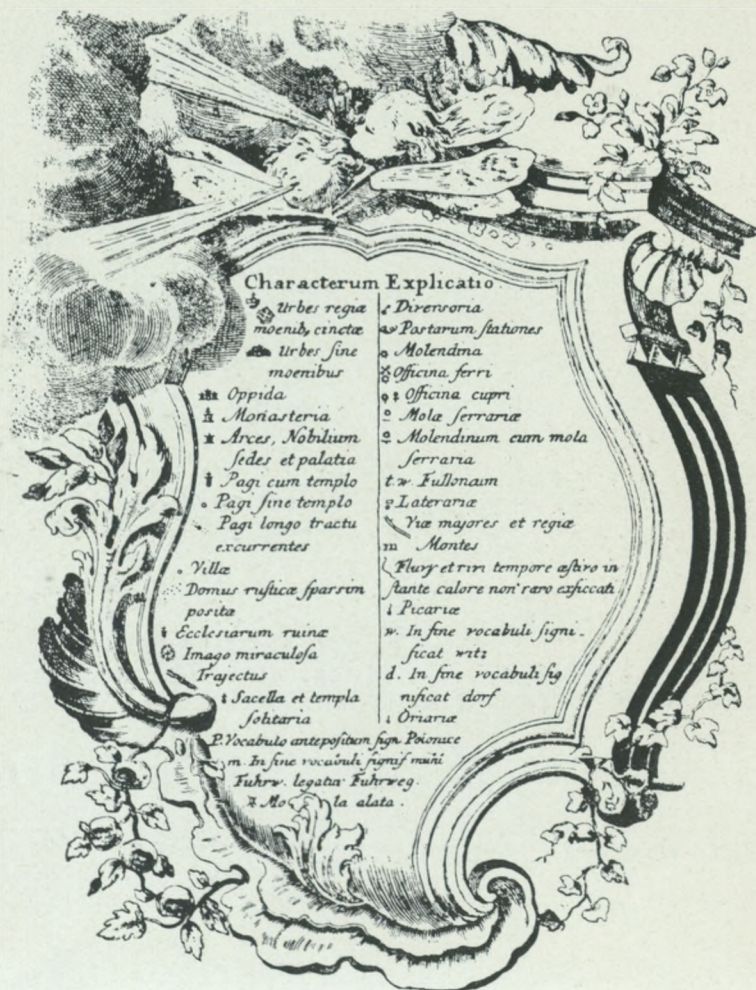 Characterum Explicatio
Urbes regiæ
moenib, cinctæ
Urbes ſine
moenibus
Oppida
Monasteria
Arces, Nobilium
ſedes et palatia
Pagi cum templo
Pagi ſine templo
Pagi longo tractu
excurrentes
Villæ
Domus ruſticæ ſparsim
posita
Ecclesiarum ruinæ
Imago miraculoſa
Trajectus
Sacella et templa
ſolitaria
Dirensoria
Postarum ſtationes
Molendina
Officina ferri
Officina cupri
Molæ ſerrariæ
Molendinum cum mola
ſerraria
t. w. Fullonum
Laterariæ
Viæ majores et regiæ
m Montes
Fluvy et rivi tempore æſtivo in
ſtante calore non raro exſiccati
Picariæ
w. In fine vocabuli ſigni-
ficat witz
d. In fine vocabuli ſig
nificat dorf
Oriariæ
P. Vocabulo antepositum ſign.
m. In fine vocabuli ſignif
Fuhrw. legatur Fuhrweg.
la alata.